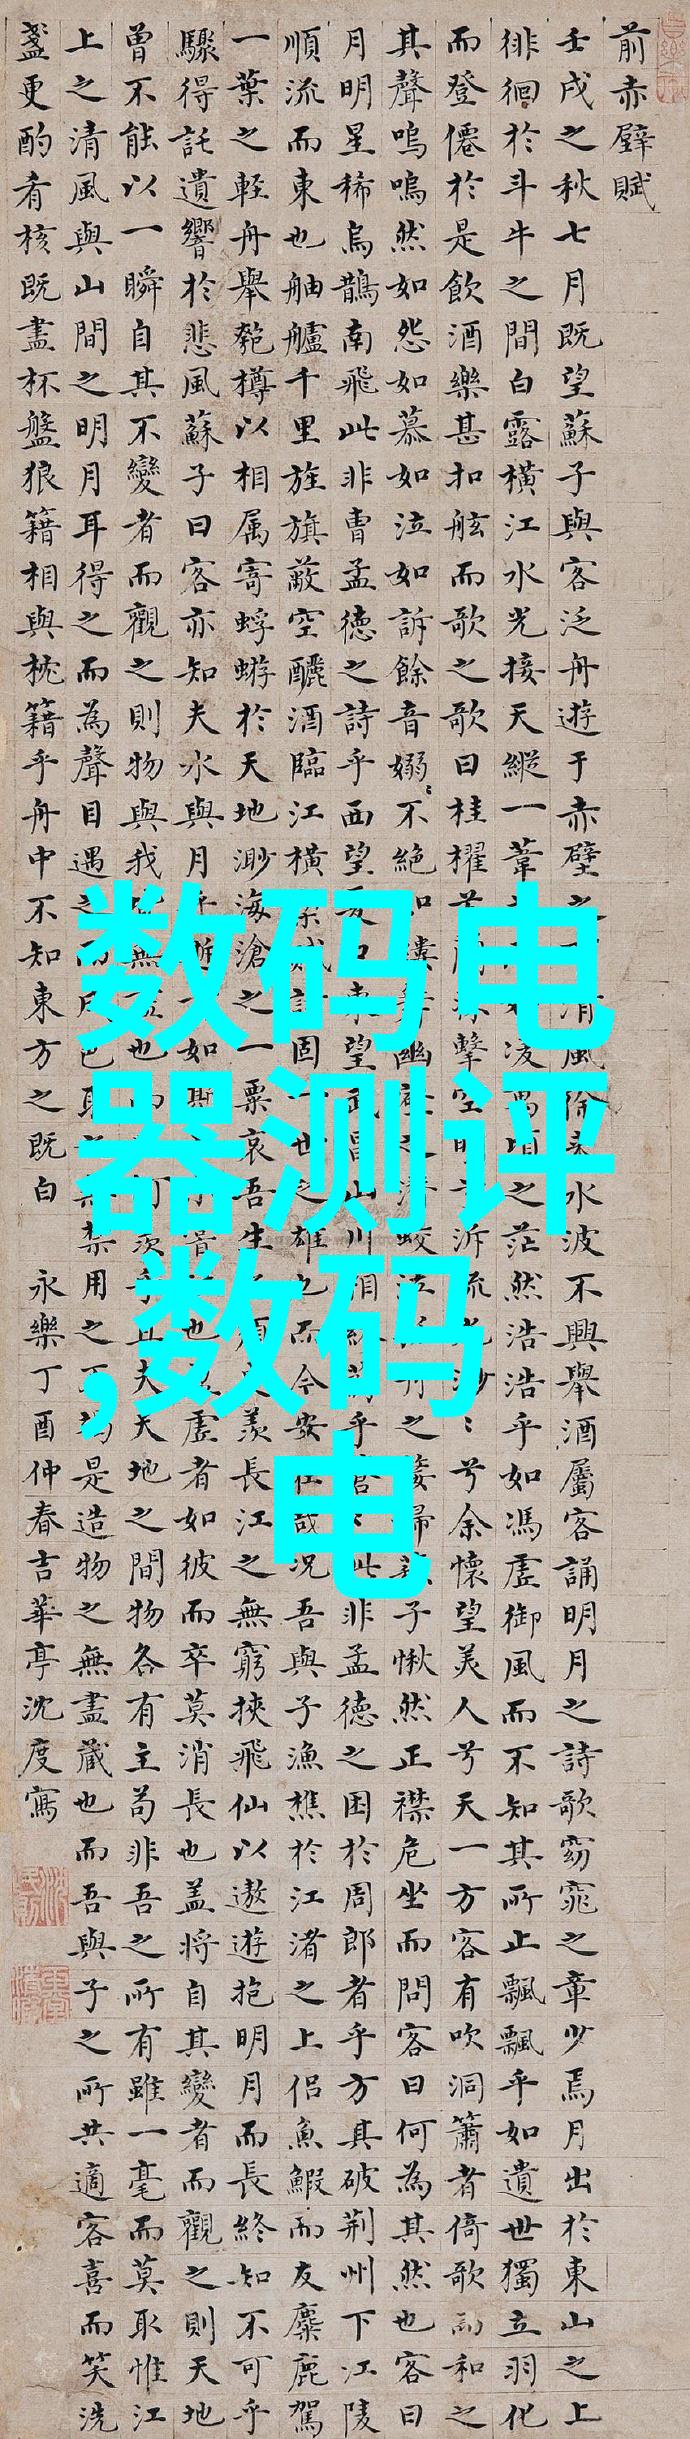 前赤壁賦
壬戌之秋七月既望蘇子與客泛舟遊于赤壁之下清風徐來水波不興舉酒屬客誦明月之詩歌窈窕之章少焉月出於東山之上
徘徊於斗牛之間白露橫江水光接天縱一葦之所如凌萬頃之茫然浩浩乎如馮虛御風而不知其所止飄飄乎如遺世獨立羽化
而登僊於是飲酒樂甚扣舷而歌之歌曰桂櫂兮蘭槳擊空明兮泝流光渺〻兮余懷望美人兮天一方客有吹洞簫者倚歌而和之
其聲嗚嗚然如怨如慕如泣如訴餘音嫋〻不絕如縷舞幽壑之潛蛟泣孤舟之嫠婦蘇子愀然正襟危坐而問客曰何為其然也客曰
月明星稀烏鵲南飛此非曹孟德之詩乎西望夏口東望武昌山川相繆鬱乎蒼〻此非孟德之困於周郎者乎方其破荊州下江陵
順流而東也舳艫千里旌旗蔽空釃酒臨江橫槊賦詩固一世之雄也而今安在哉況吾與子漁樵於江渚之上侶魚鰕而友麋鹿駕
一葉之輕舟舉匏樽以相属寄蜉蝣於天地渺海滄之一粟哀吾生之須臾羨長江之無窮挾飛仙以遨遊抱明月而長終知不可乎
驟得託遺響於悲風蘇子曰客亦知夫水與月乎逝者如斯而未嘗往也盈虛者如彼而卒莫消長也蓋將自其變者而觀之則天地
曾不能以一瞬自其不變者而觀之則物與我皆無盡也而又何羨乎且夫天地之間物各有主苟非吾之所有雖一毫而莫取惟江
上之清風與山間之明月耳得之而為聲目遇之而成色取之無禁用之不竭是造物之無盡藏也而吾與子之所共適客喜而笑洗
盞更酌肴核既盡杯盤狼籍相與枕籍乎舟中不知東方之既白 永樂丁酉仲春吉華亭沈度寫
数码电
器测评
,数码
电